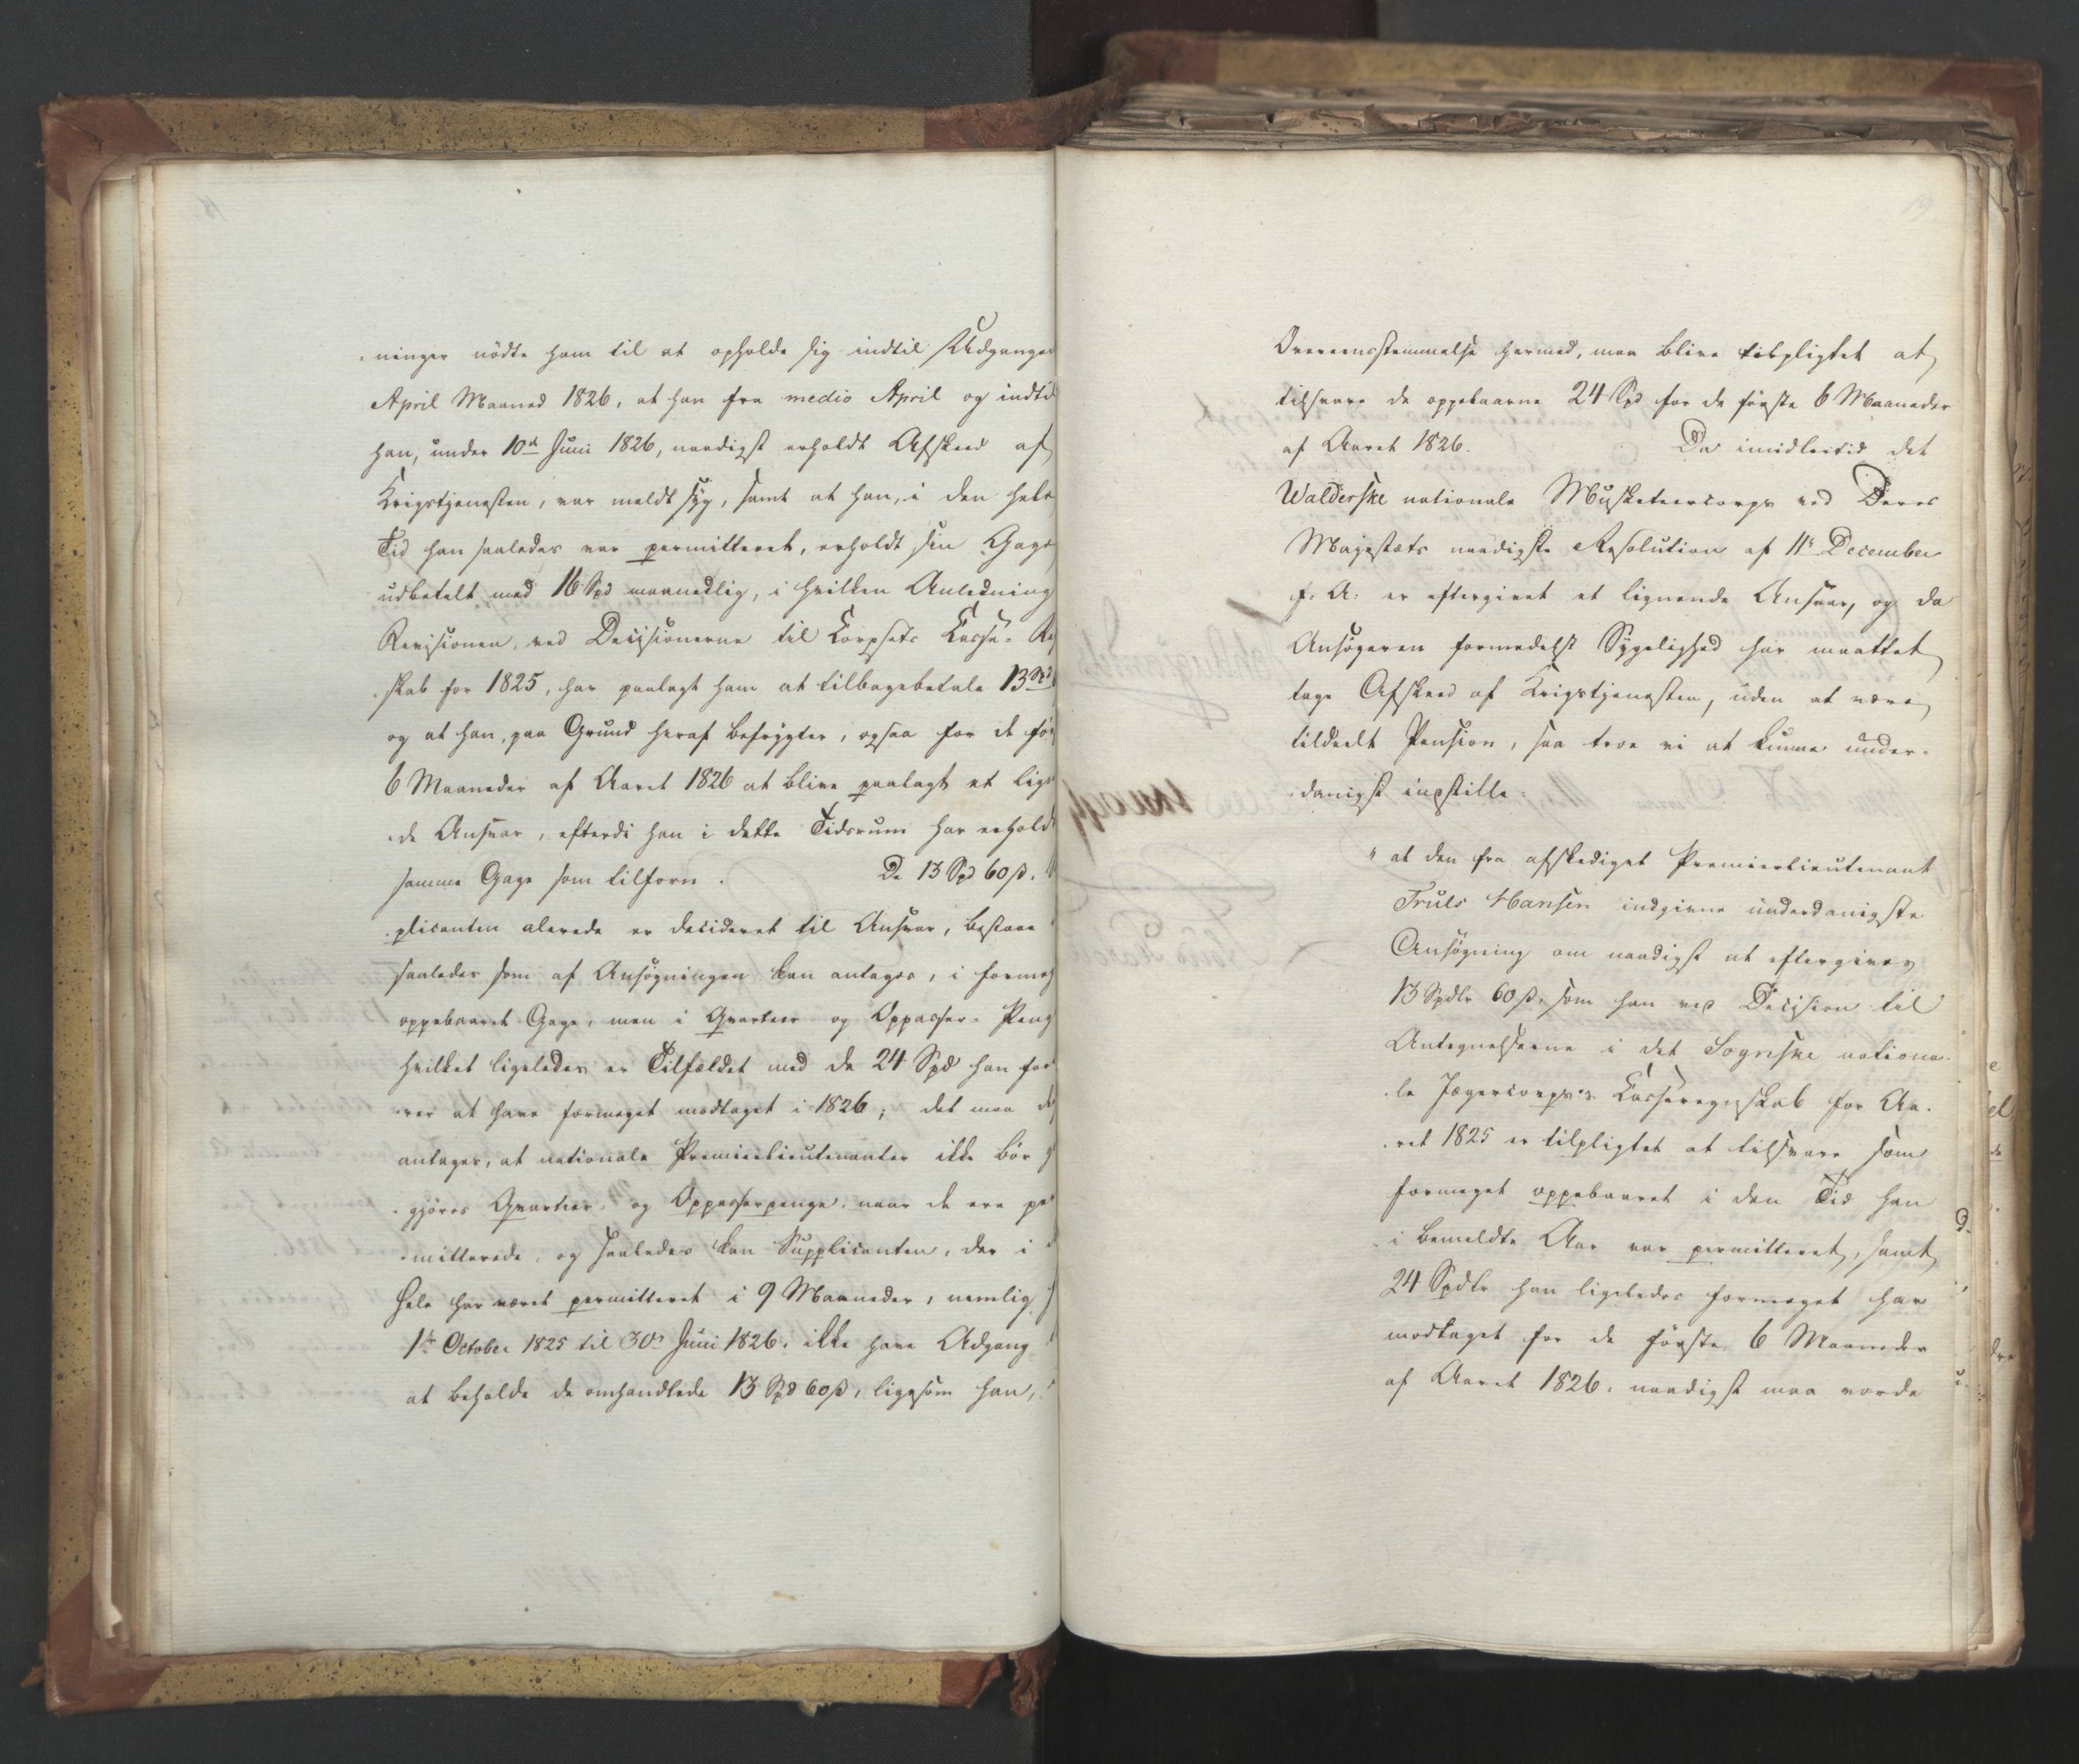 ninger nödte ham til at opholde sig indtil Udgangen
April Maaned 1826, at han fra medio April og indtil
han, under 10de Juni 1826, naadigst erholdt Afskeed af
Krigstjenesten, var meldt syg, samt at han, i den hele
Tid han saaledes var permitteret, erholdt sin Gage
udbetalt med 16 Spd maanedlig, i hvilken Anledning
Revisionen, ved Decisionerne til Corpsets Casse-Re
skab for 1825, har paalagt ham at tilbagebetale 13 Spd
og at han, paa Grund heraf befrygter, ogsaa for de før
6 Maaneder af Aaret 1826 at blive paalagt et lig
de Ansvar, efterdi han i dette Tidsrum har erholdt
samme Gage som tilforn. De 13 Spd 60 ß.
plicanten alerede er decideret til Ansvar, bestaae
saaledes som af Ansøgningen kan antages, i formeg
oppebaaret Gage, men i Qvarteer og Oppasser-Peng
hvilket ligeledes er Tilfældet med de 24 Spd han for
rer at have formeget modtaget i 1826; det maa
antages, at nationale Premierlieutenanter ikke bör
gjøres Qvarteer- og Oppasserpenge, naar de ere per
mitterede, og saaledes kan Supplicanten, der i
Hele har været permitteret i 9 Maaneder, nemlig
1ste October 1825 til 30te Juni 1826, ikke have Adgang
at beholde de omhandlede 13 Spd 60 ß, ligesom han,
19
Overeensstemmelse hermed, maa blive tilpligtet at
tilsvare de oppebaarne 24 Spd for de første 6 Maaneder
af Aaret 1826. Da imidlertid det
Walderske nationale Musketeercorps ved Deres
Majestæts naadigste Resolution af 11te December
f. A. er eftergivet et lignende Ansvar, og da
Ansögeren formedelst Sygelighed har maattet
tage Afskeed af Krigstjenesten, uden at være
tildeelt Pension, saa troe vi at kunne under-
danigst indstille:
" at den fra afskediget Premierlieutenant
Truls Hansen indgivne underdanigste
Ansøgning om naadigst at eftergives
13 Spdlr 60 ß, som han ved Decision til
Antegnelserne i det Sognske nationa-
le Jægercorps's Casseregnskab for Aa-
ret 1825 er tilpligtet at tilsvare som
formeget oppebaaret i den Tid han
i bemeldte Aar var permitteret, samt
24 Spdlr han ligeledes formeget har
modtaget for de første 6 Maaneder
af Aaret 1826, naadigst maa vorde